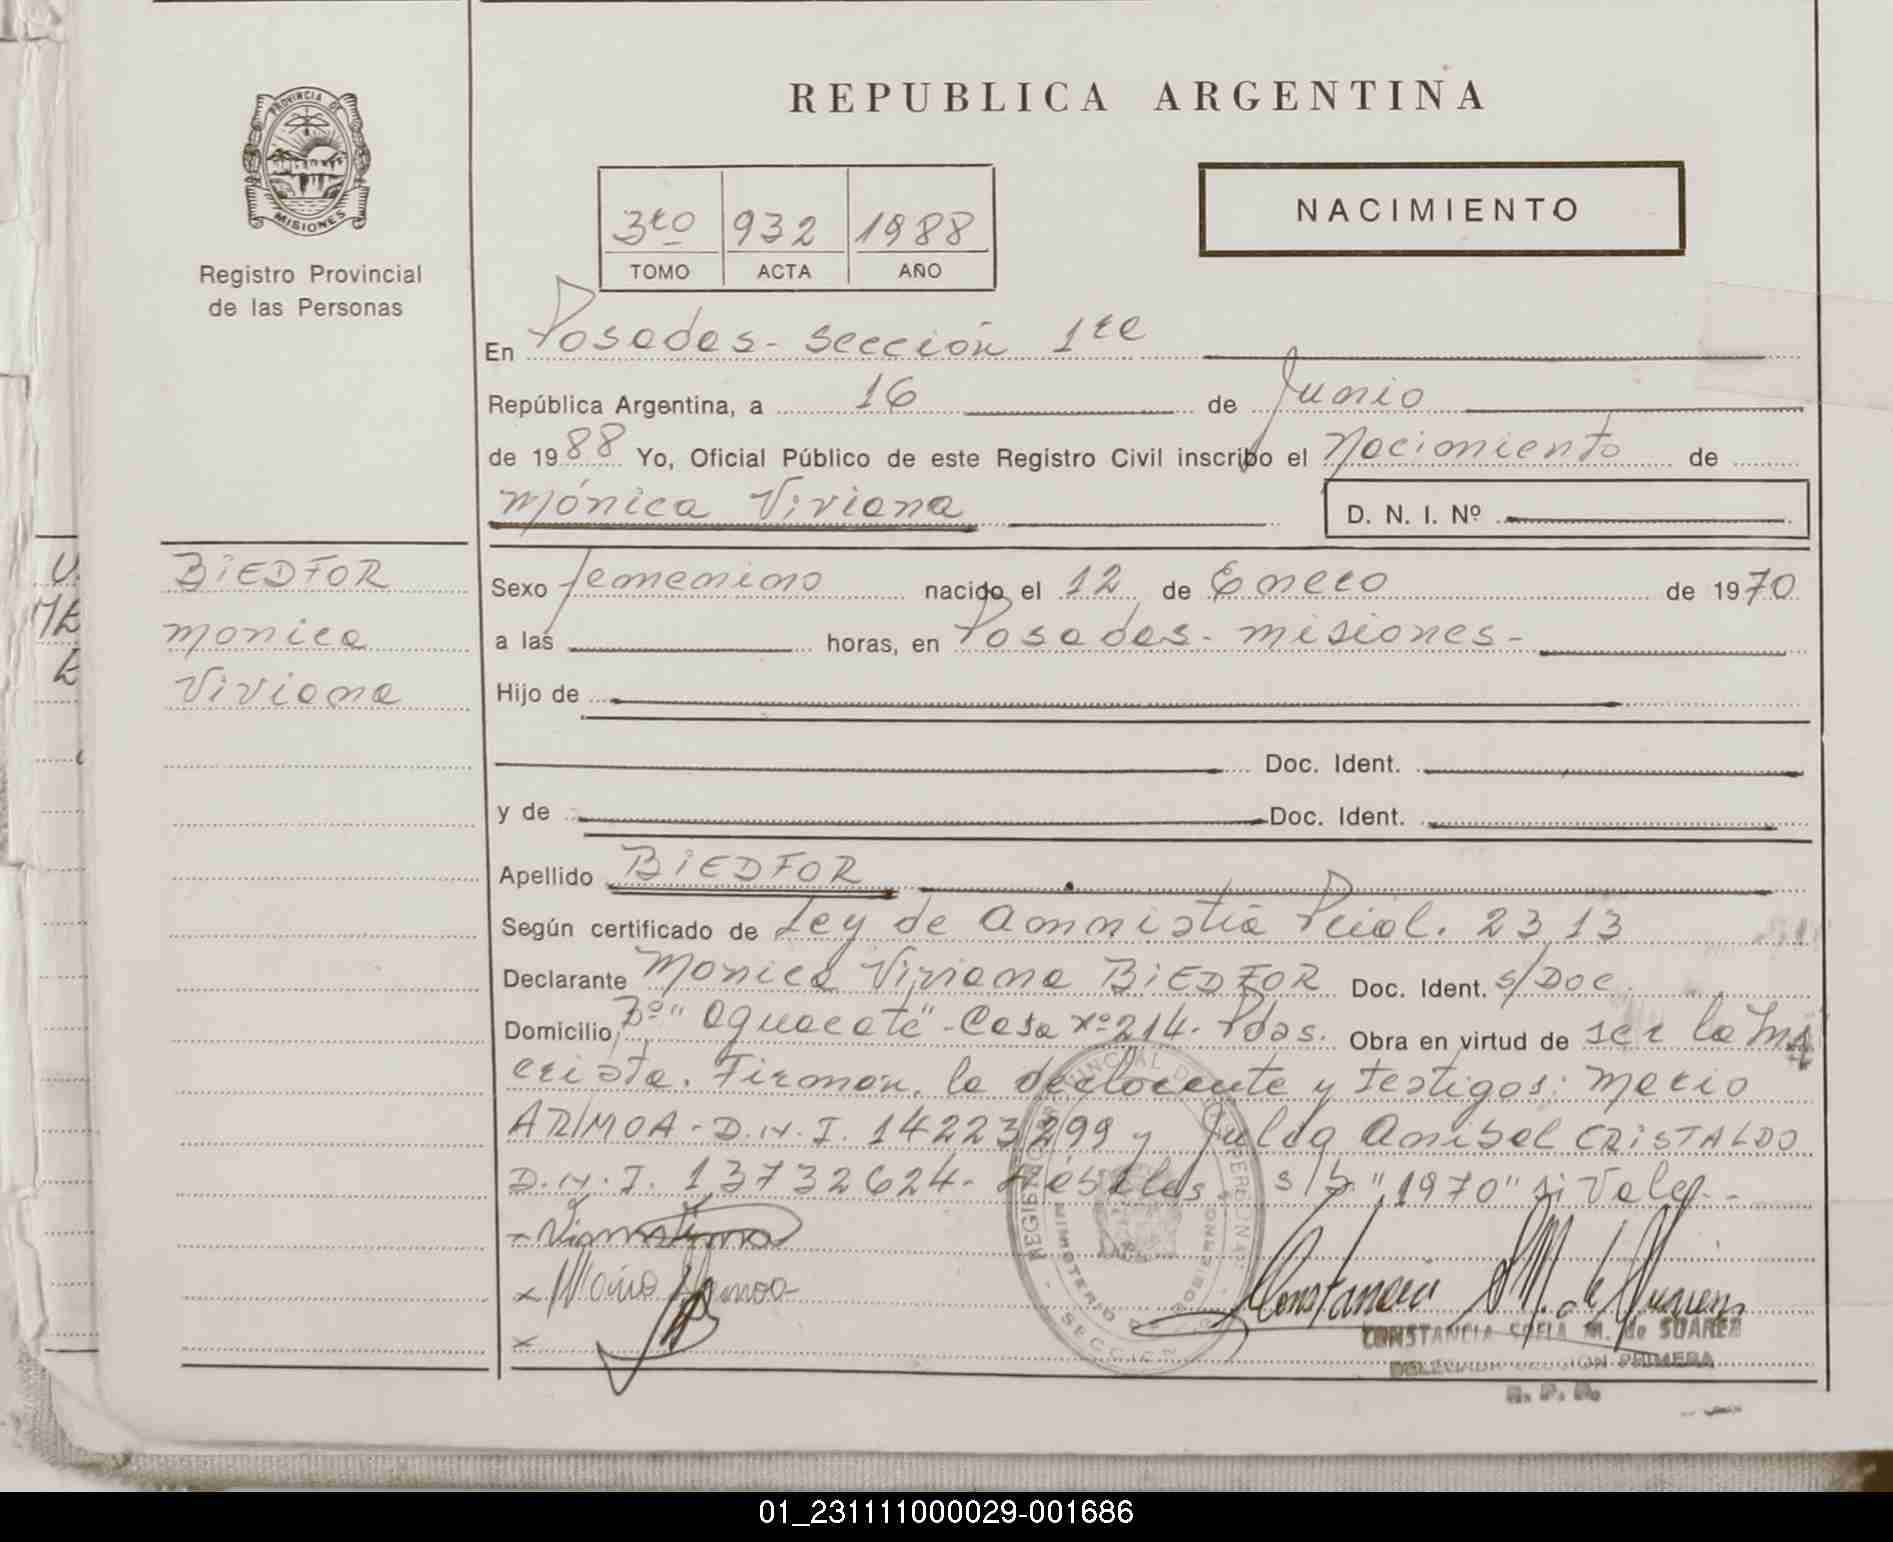 REPUBLICA ARGENTINA
PROVINCIA DE
MISIONES
Registro Provincial
de las Personas
3ro 932 1988
TOMO ACTA AÑO
NACIMIENTO
En Posadas - Sección 1ra
República Argentina, a 16 de Junio
de 1988 Yo, Oficial Público de este Registro Civil inscribo el Nacimiento de
Mónica Viviana
D. N. I. Nº
BIEDFOR
Monica
Viviana
Sexo femenino nacido el 12 de Enero de 1970
a las horas, en Posadas - Misiones -
Hijo de
Doc. Ident.
y de Doc. Ident.
Apellido BIEDFOR
Según certificado de Ley de Amnistia Pcial. 2313
Declarante Monica Viviana BIEDFOR Doc. Ident. s/Doc
Domicilio Bº "Aguacate" - Casa Nº 214 - Pdas. Obra en virtud de ser la
Firman, la declarante y testigos: Mario
ARIMOA - D.N.I. 14223299 y Anibal CRISTALDO
D.N.I. 13732624 - s/b "1970" si Vale -
Mario
CONSTANCIA SOFIA M. de SUAREZ
SECCION PRIMERA
R. P. P.
01_231111000029-001686